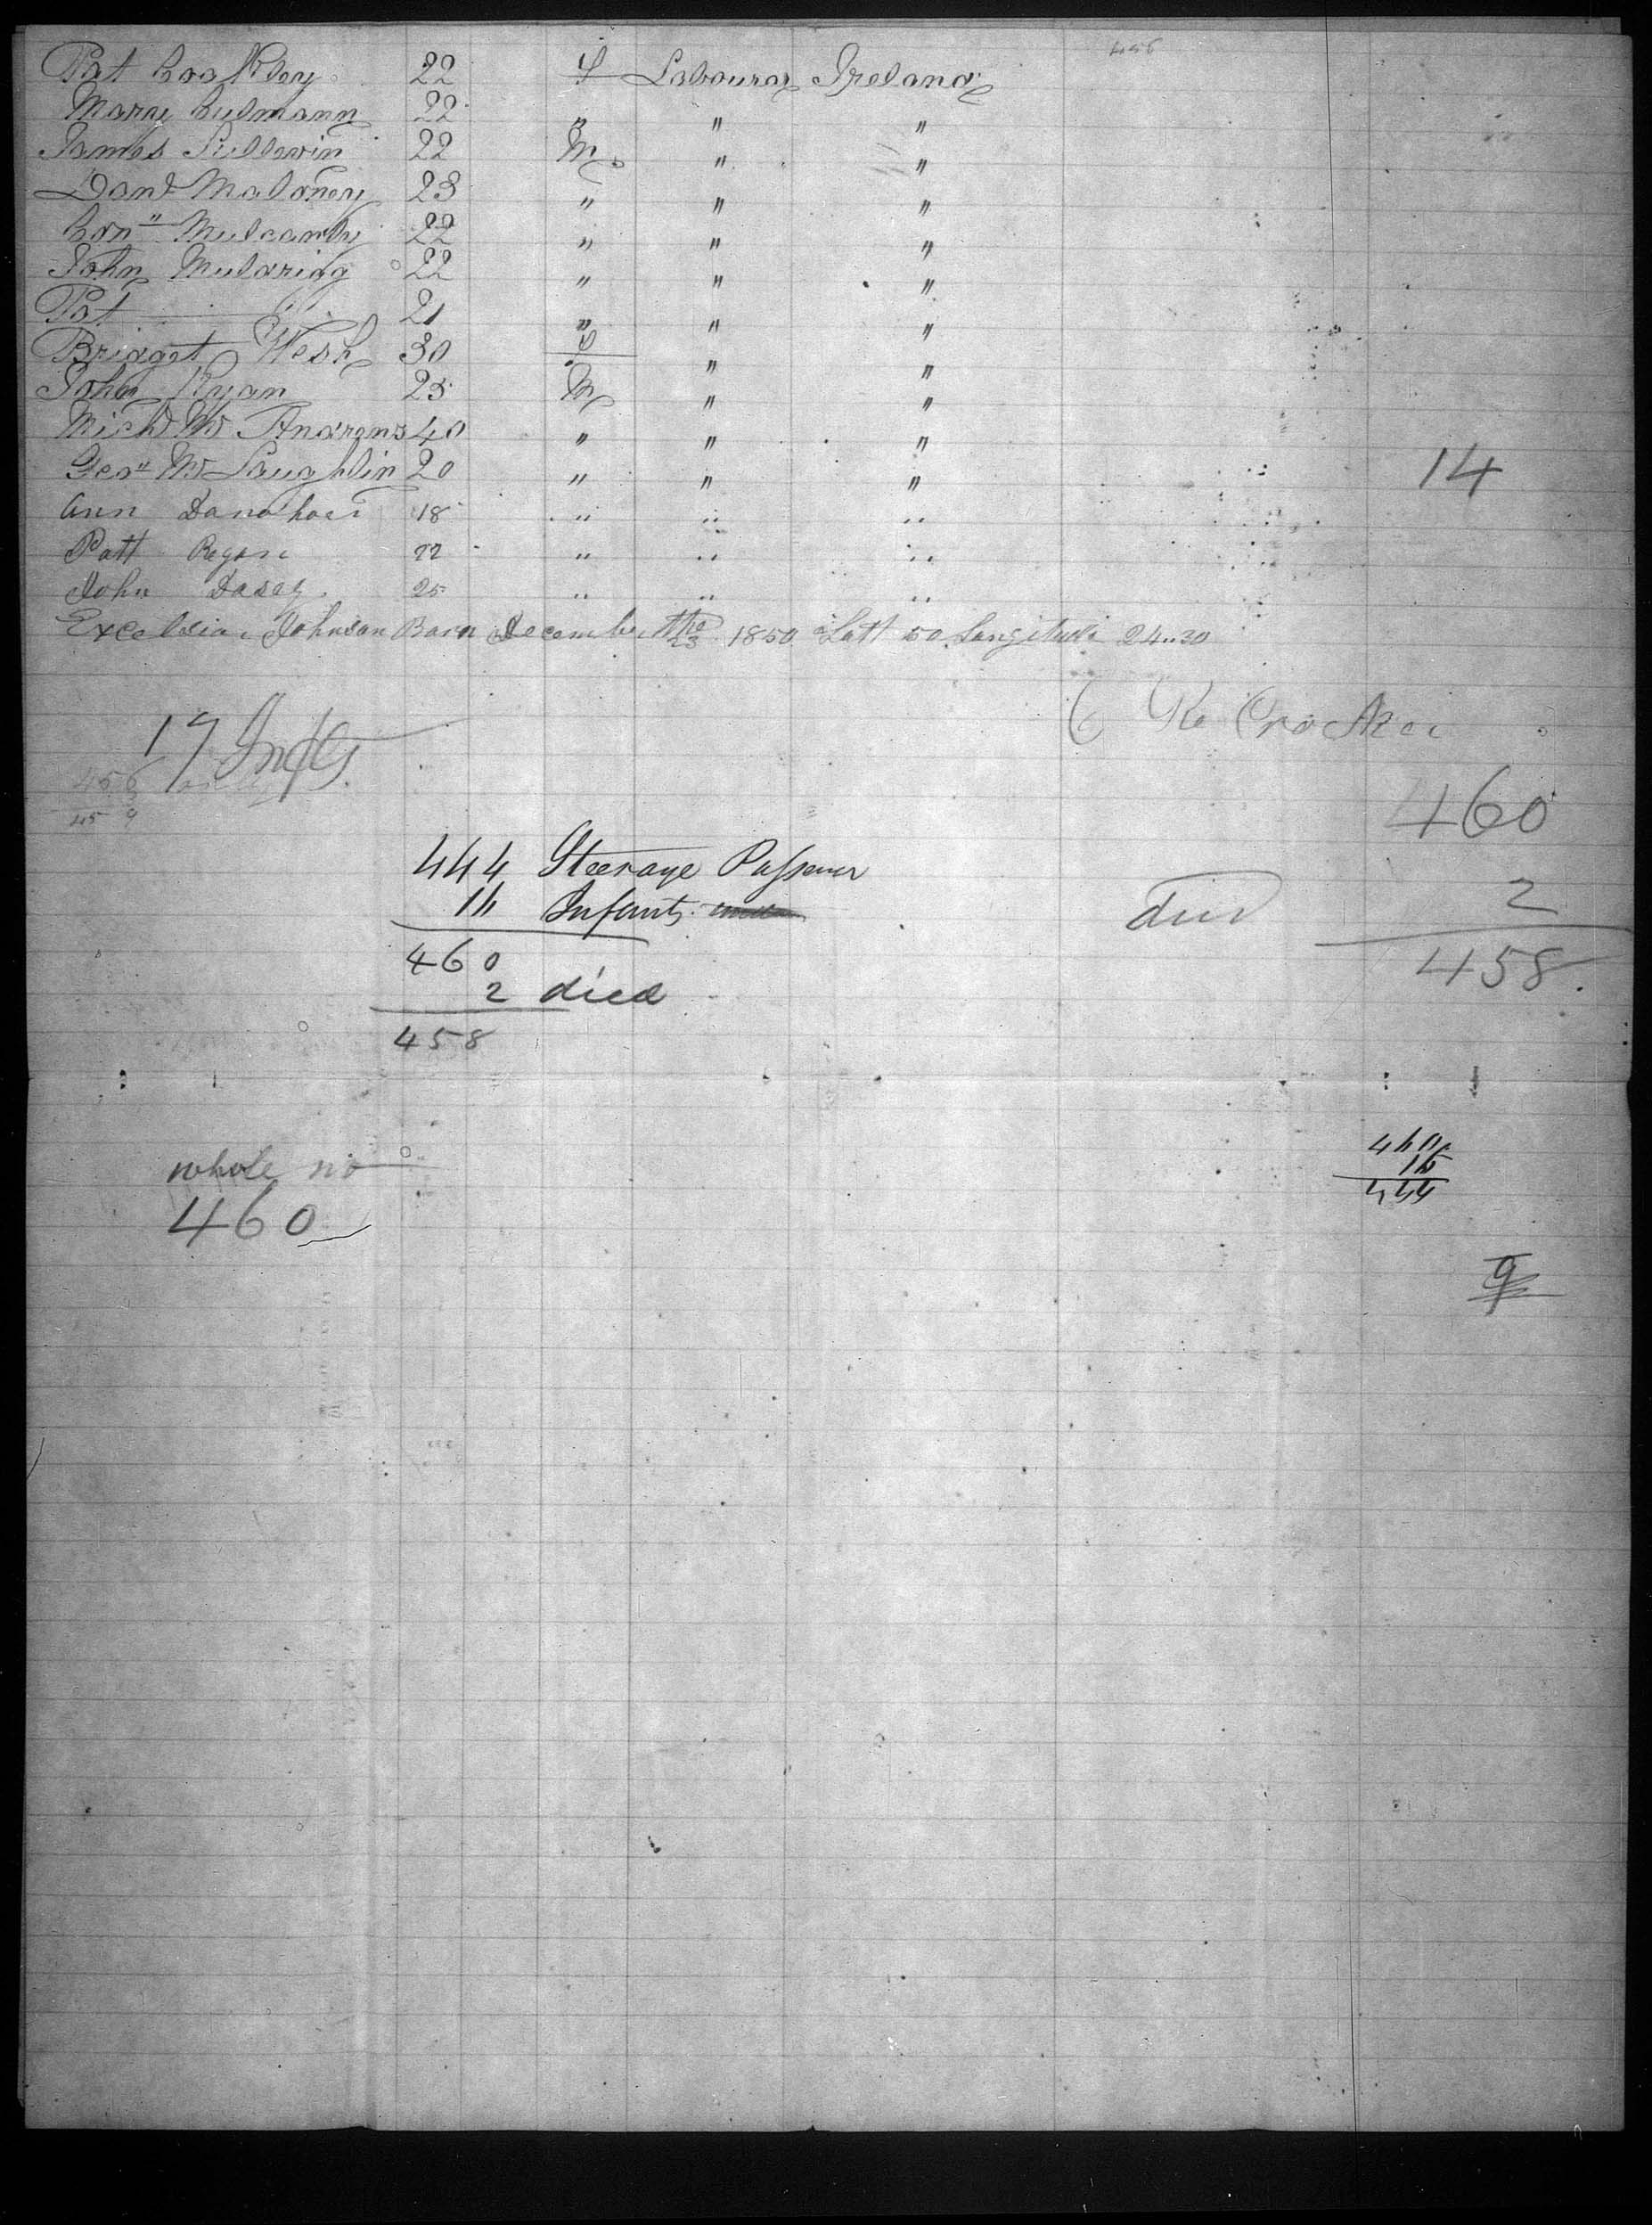 456
Pat Coakley 22 f Labourer Ireland
Mary Culmann 22 " " "
James Sullevin 22 M " "
Danl Maloney 23 " " "
Corn" Mulcanthy 22 " " "
John Muldrigg 22 " " "
Pat 21 " " "
Bridget Welsh 30 f " "
John Ryan 25 M " "
Michl Mc Andrews 40 " " "
Geo" Mc Laughlin 20 " " " 14
Ann Danahoer 18 " " "
Patt Regan 22 " " "
John Dasey 25 " " "
Excelsior Johnson Born December the 23 1850 Latt 50 Longitude 24..30
17 Infts
460
444 Steerage
16 Infants
died 2
460
458
2 died
458
whole no
460
460
16
444
9